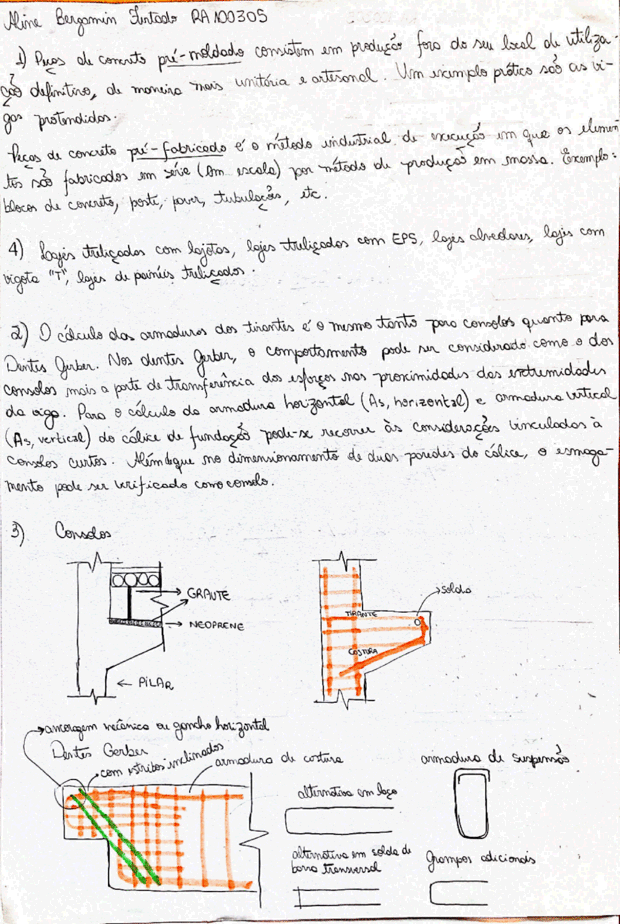 Aline Bergamin Furtado RA 100305
1) Peças de concreto pré-moldado consistem em produção fora do seu local de utiliza-
ção definitivo, de maneira mais unitária e artesanal. Um exemplo prático são as vi-
gas protendidas.
Peças de concreto pré-fabricado é o método industrial de execução em que os elemen-
tos são fabricados em série (em escala) por método de produção em massa. Exemplo:
blocos de concreto, poste, paver, tubulações, etc.
4) Lajes treliçadas com lajotas, lajes treliçadas com EPS, lajes alveolares, lajes com
vigota "T", lajes de painéis treliçados.
2) O cálculo das armaduras dos tirantes é o mesmo tanto para consolos quanto para
Dentes Gerber. Nos dentes Gerber, o comportamento pode ser considerado como o dos
consolos mais a parte de transferência dos esforços nas proximidades das extremidades
da viga. Para o cálculo da armadura horizontal (As, horizontal) e armadura vertical
(As, vertical) do cálice de fundação pode-se recorrer às considerações vinculados à
consolos curtos. Além de que no dimensionamento de duas paredes do cálice, o esmaga-
mento pode ser verificado como consolo.
3) Consolos
GRAUTE
NEOPRENE
PILAR
solda
TIRANTE
COSTURA
ancoragem mecânica ou gancho horizontal
Dentes Gerber
com estribos inclinados
armadura de costura
armadura de suspensão
alternativa em laço
alternativa em solda de
barra transversal
grampos adicionais